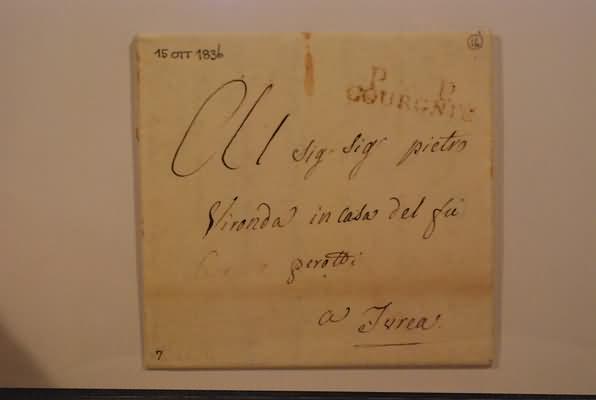 15 OTT 1836
16
P. P.
COURGNÉ
All sig. sig.r pietro
Vironda in casa del fù
perotti
a Jvrea
7